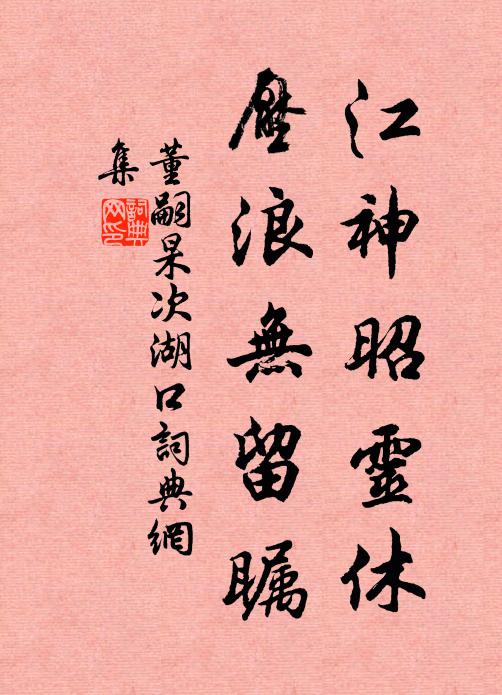 江神昭靈休
壓浪無留瞩
董嗣杲次湖口詞典網
集
詞典
网印